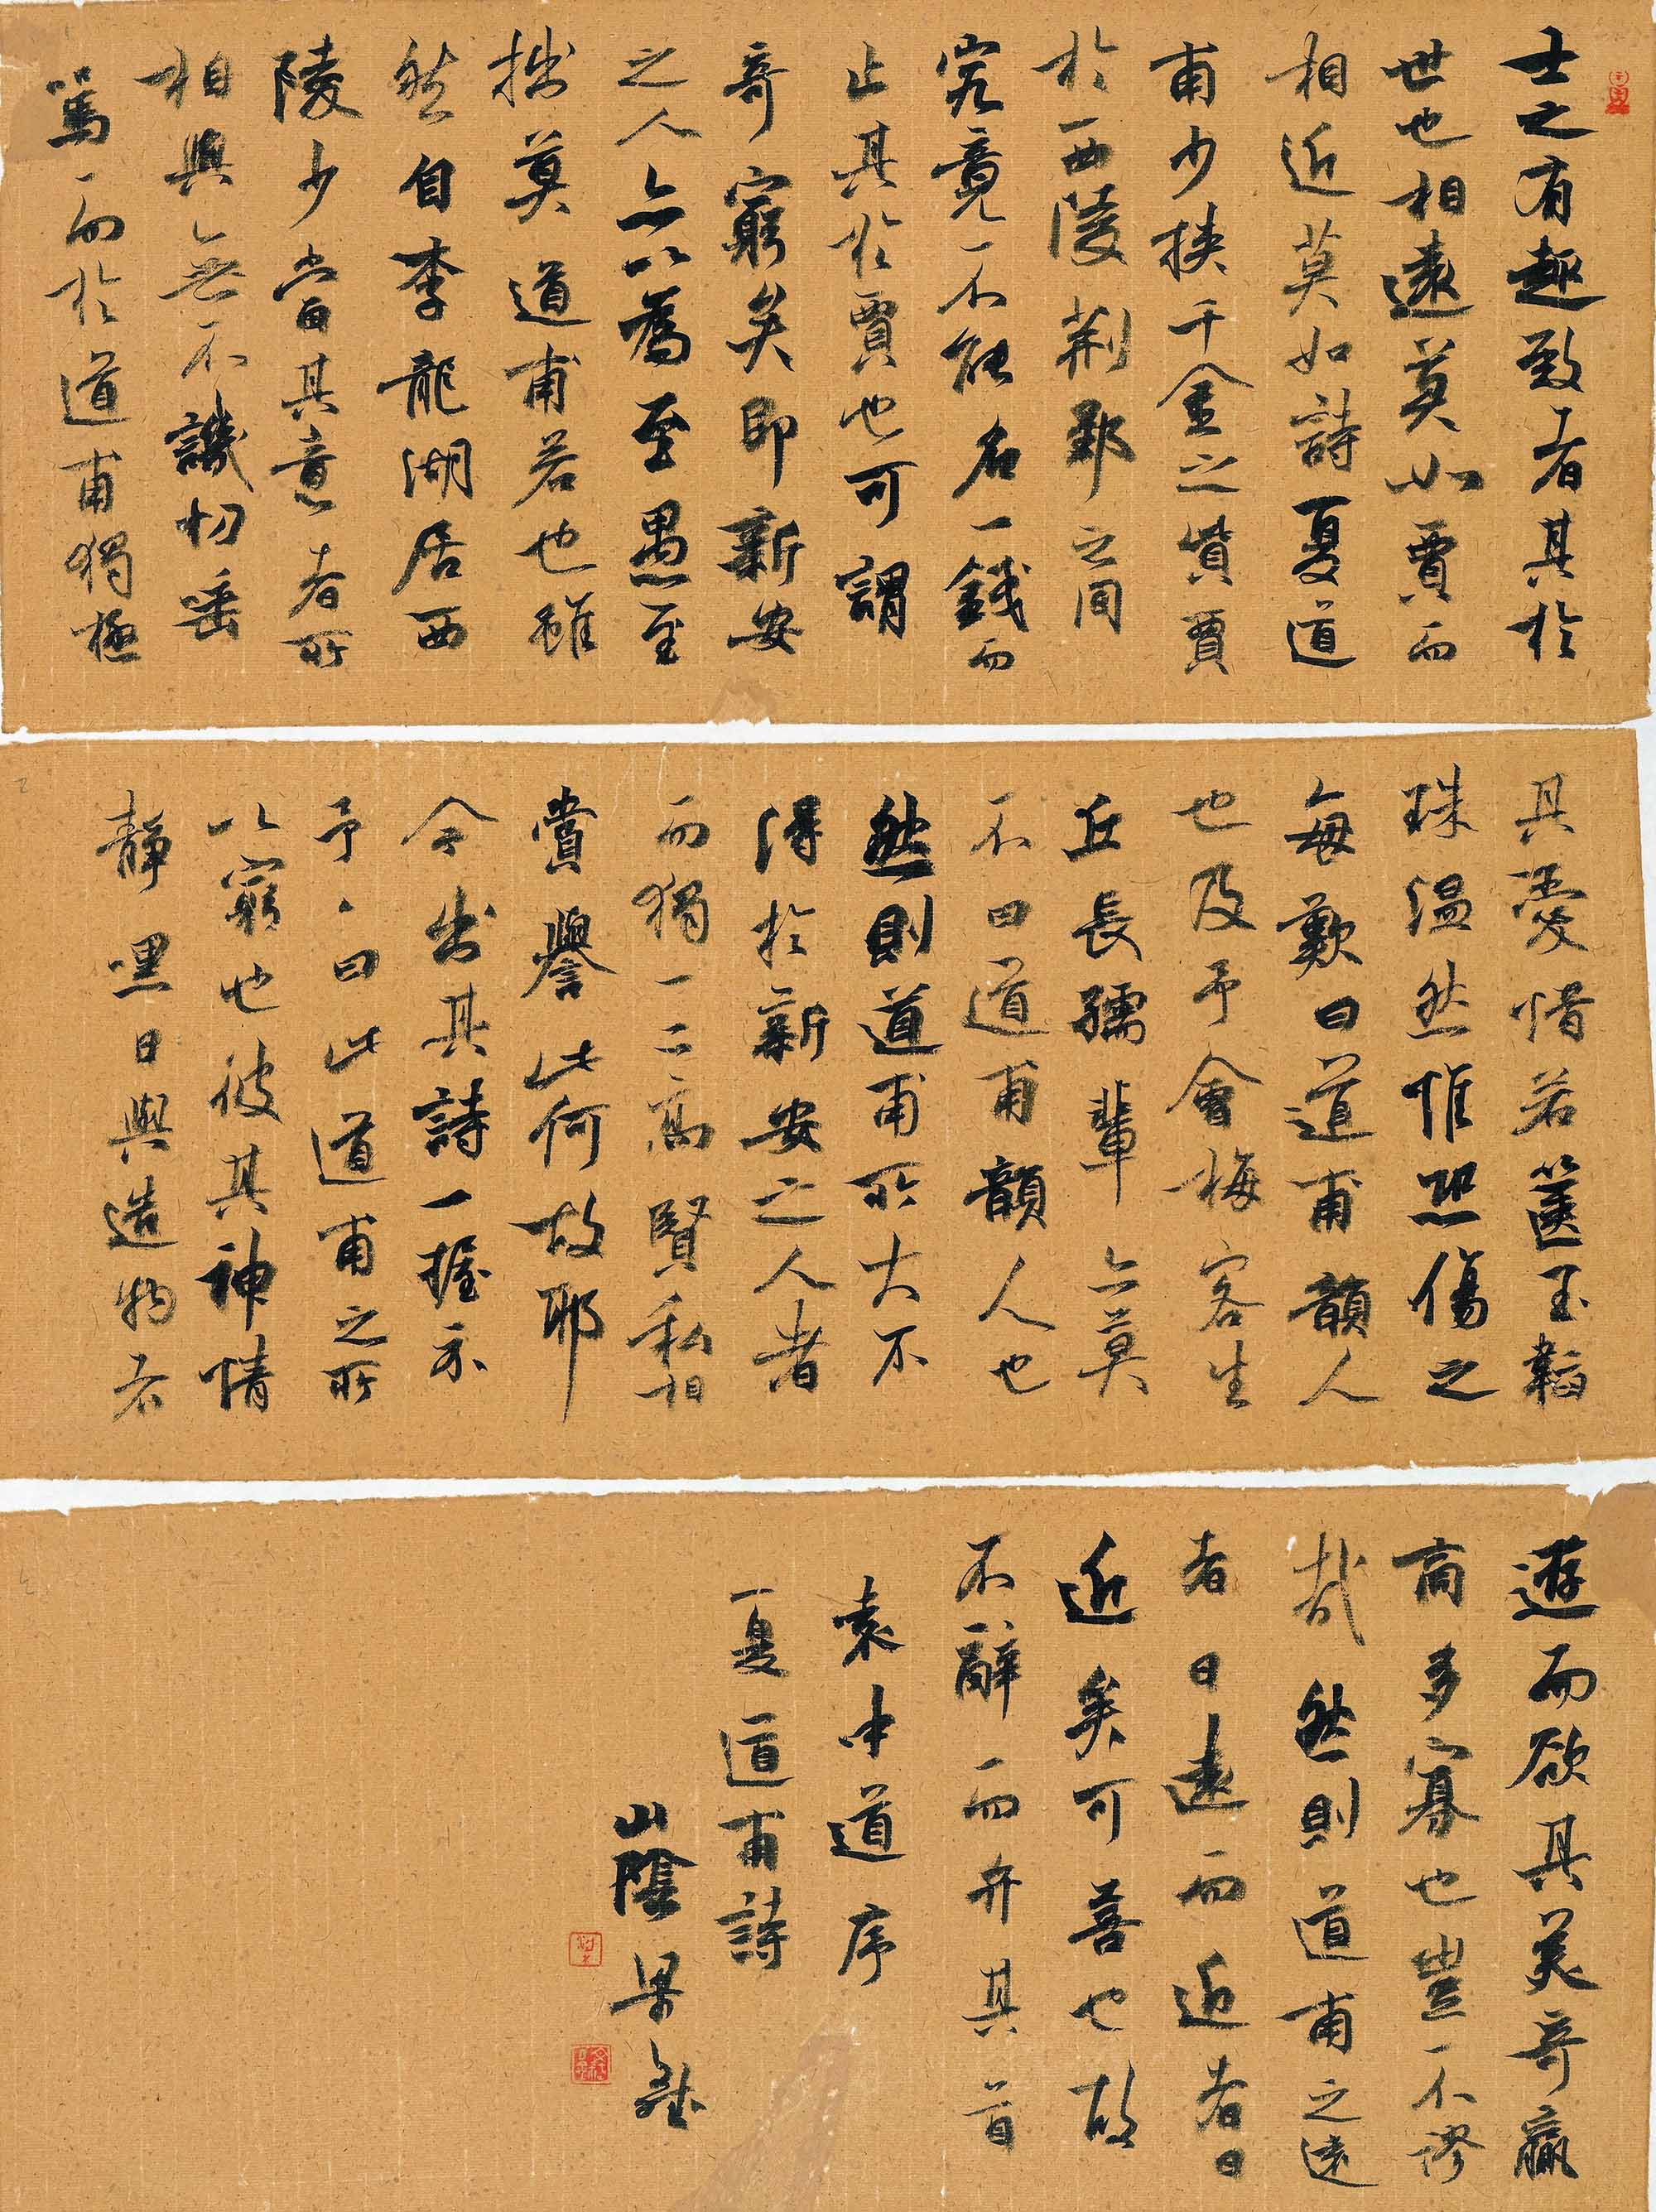 士之有趣致者其於
世也相遠莫如賈而
相近莫如詩夏道
甫少挾千金之貲賈
於西陵荆郢之間
究竟不能名一錢而
止其於賈也可謂
奇窮矣即新安
之人亦以爲至愚至
拙莫道甫若也雖
然自李龍湖居西
陵少當其意者所
相與無不譏切垂
罵而於道甫獨極
其憂惜若篋玉韜
珠温然惟恐傷之
每歎曰道甫韻人
也及予會梅客生
丘長孺輩亦莫
不曰道甫韻人也
然則道甫所大不
得於新安之人者
而獨一二高賢私相
賞譽此何故耶
今出其詩一握示
予、曰此道甫之所
以窮也彼其神情
靜黑日與造物者
遊而欲其美奇贏
商多寡也豈不謬
哉然則道甫之遠
者日遠而近者日
近矣可喜也故
不辭而弁其首
袁中道序
夏道甫詩
山陰